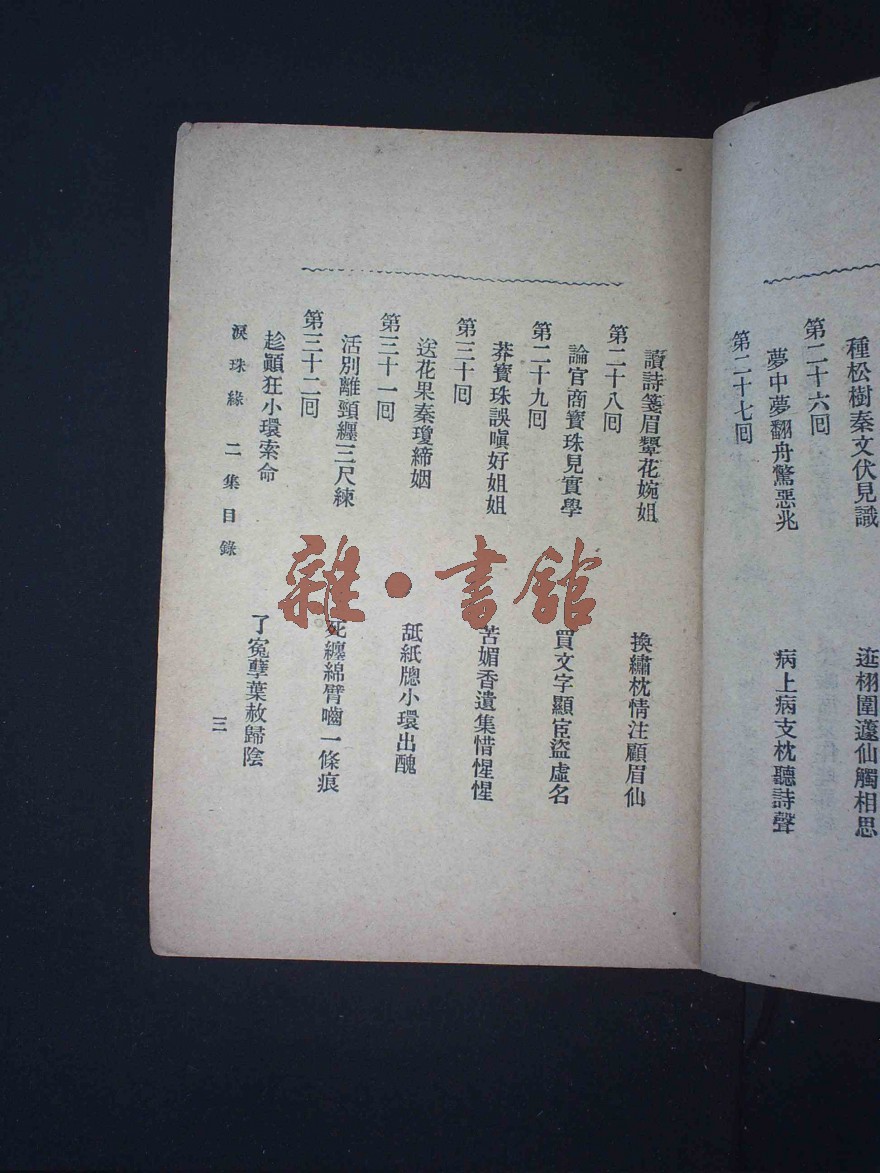 種松樹秦文伏見識 逛栩園蘧仙觸相思
第二十六回
夢中夢翻舟驚惡兆 病上病支枕聽詩聲
第二十七回
讀詩箋眉顰花婉姐 換繡枕情注顧眉仙
第二十八回
論官商寶珠見實學 買文字顯宦盜虛名
第二十九回
莽寶珠誤嗔好姐姐 苦媚香遺集惜惺惺
第三十回
送花果秦瓊締姻 舐紙牕小環出醜
第三十一回
活別離頸纏三尺練 死纏綿臂嚙一條痕
第三十二回
趁顚狂小環索命 了寃孽葉赦歸陰
淚珠緣 二集目錄 三
雜·書館